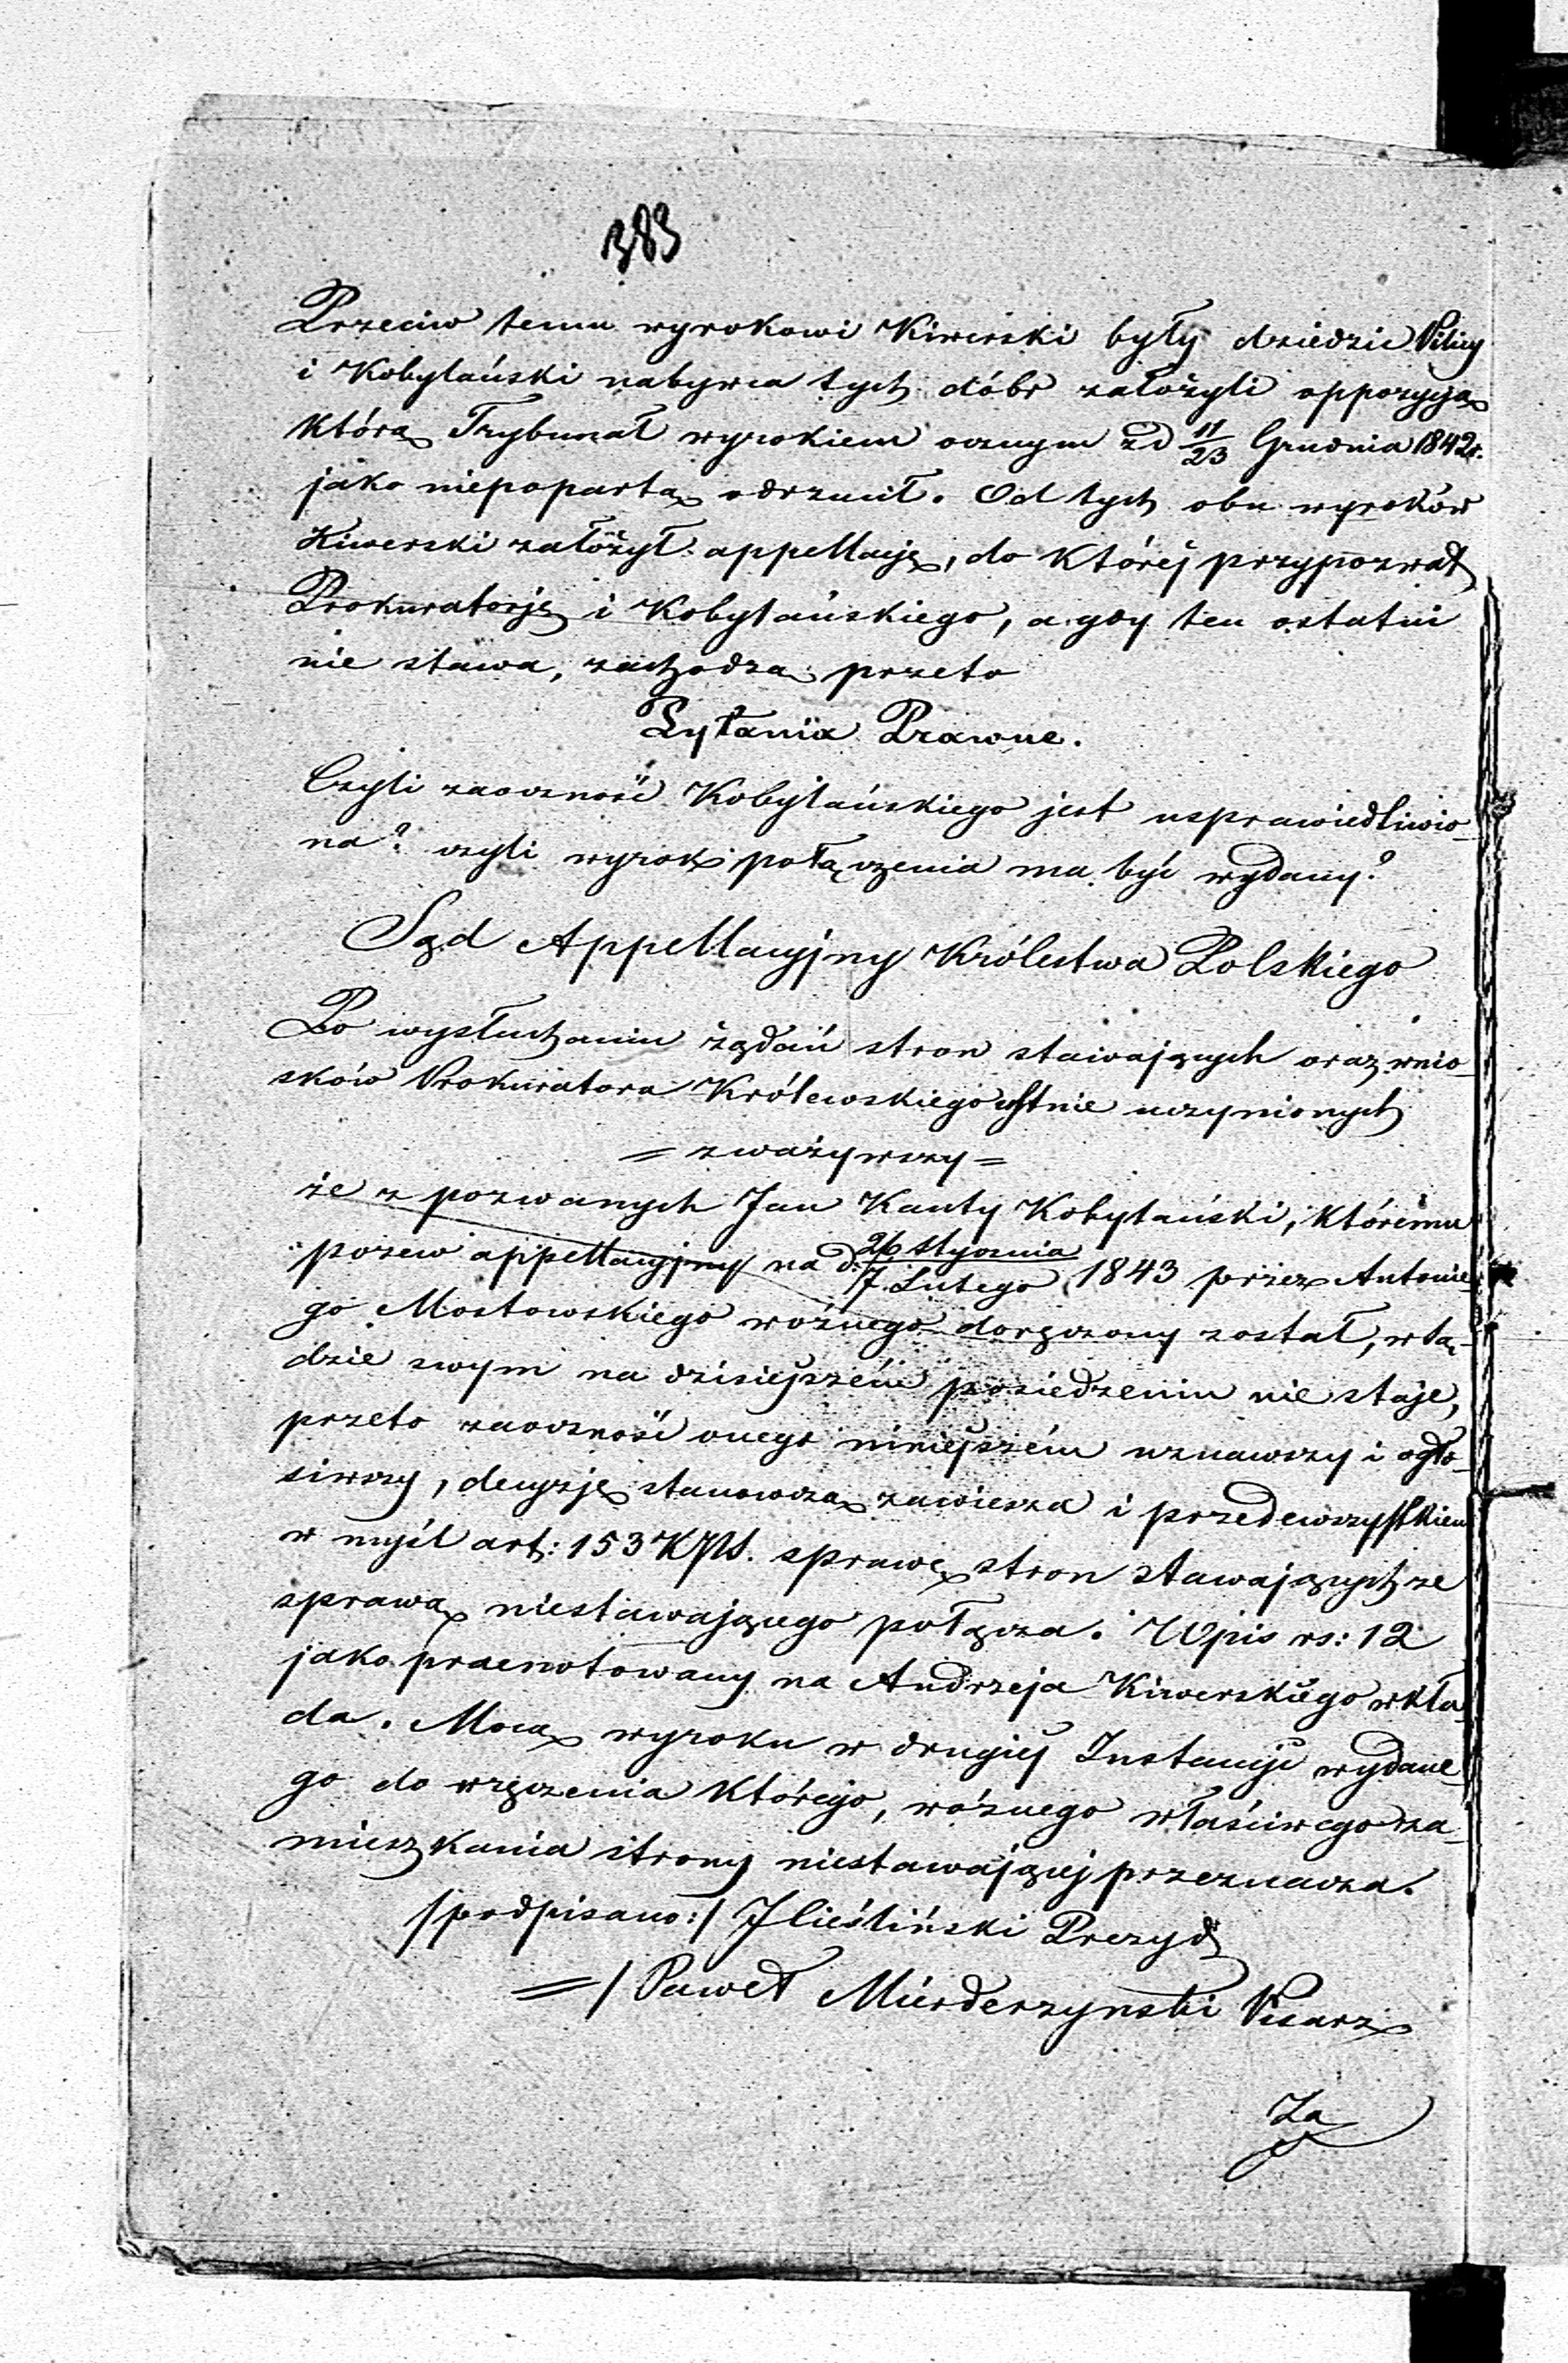 383
Przeciw temu wyrokowi Kiwerski były dziedzic Pilicy
i Kobylański nabywca tych dóbr założyli oppozyją
którą Trybunał wyrokiem ocznym z d 11/23 Grudnia 1842 r.
jako niepopartą odrzucił. Od tych obu wyroków
Kiwerski założył appellację, do której przypozwał
Prokuratorję i Kobylańskiego, a gdy ten ostatni
nie stawa, zachodzą przeto
Pytania Prawne.
Czyli zaoczność Kobylańskiego jest usprawiedliwio-
na? czyli wyrok połączenia ma być wydany?
Sąd Appellacyjny Królestwa Polskiego
Po wysłuchaniu żądań stron stawających oraz wnio-
sków Prokuratora Królewskiego ustnie uczynionych
= zważywszy =
że z pozwanych Jan Kanty Kobylański, któremu
pozew appellacyjny na d. 26 Stycznia/7 Lutego 1843 przez Antonie-
go Mostowskiego woźnego doręczony został, w są-
dzie swym na dzisiejszém posiedzeniu nie staje,
przeto zaoczność onego niniejszém uznawszy i ogło-
siwszy, decyzję stanowczą zawiesza i przedewszystkiem
w myśl art: 153 KPS. sprawę stron stawających ze
sprawą niestawającego połącza. Wpis rs: 12
jako praenotowany na Andrzeja Kiwerskiego wkła-
da. Mocą wyroku w drugiéj Instancji wydane-
go do wręczenia którego, woźnego właściwego za-
mieszkania strony niestawającej przeznacza.
/podpisano:/ J Cieśliński Prezyd
=/ Paweł Mierderzynski Pisarz
Za